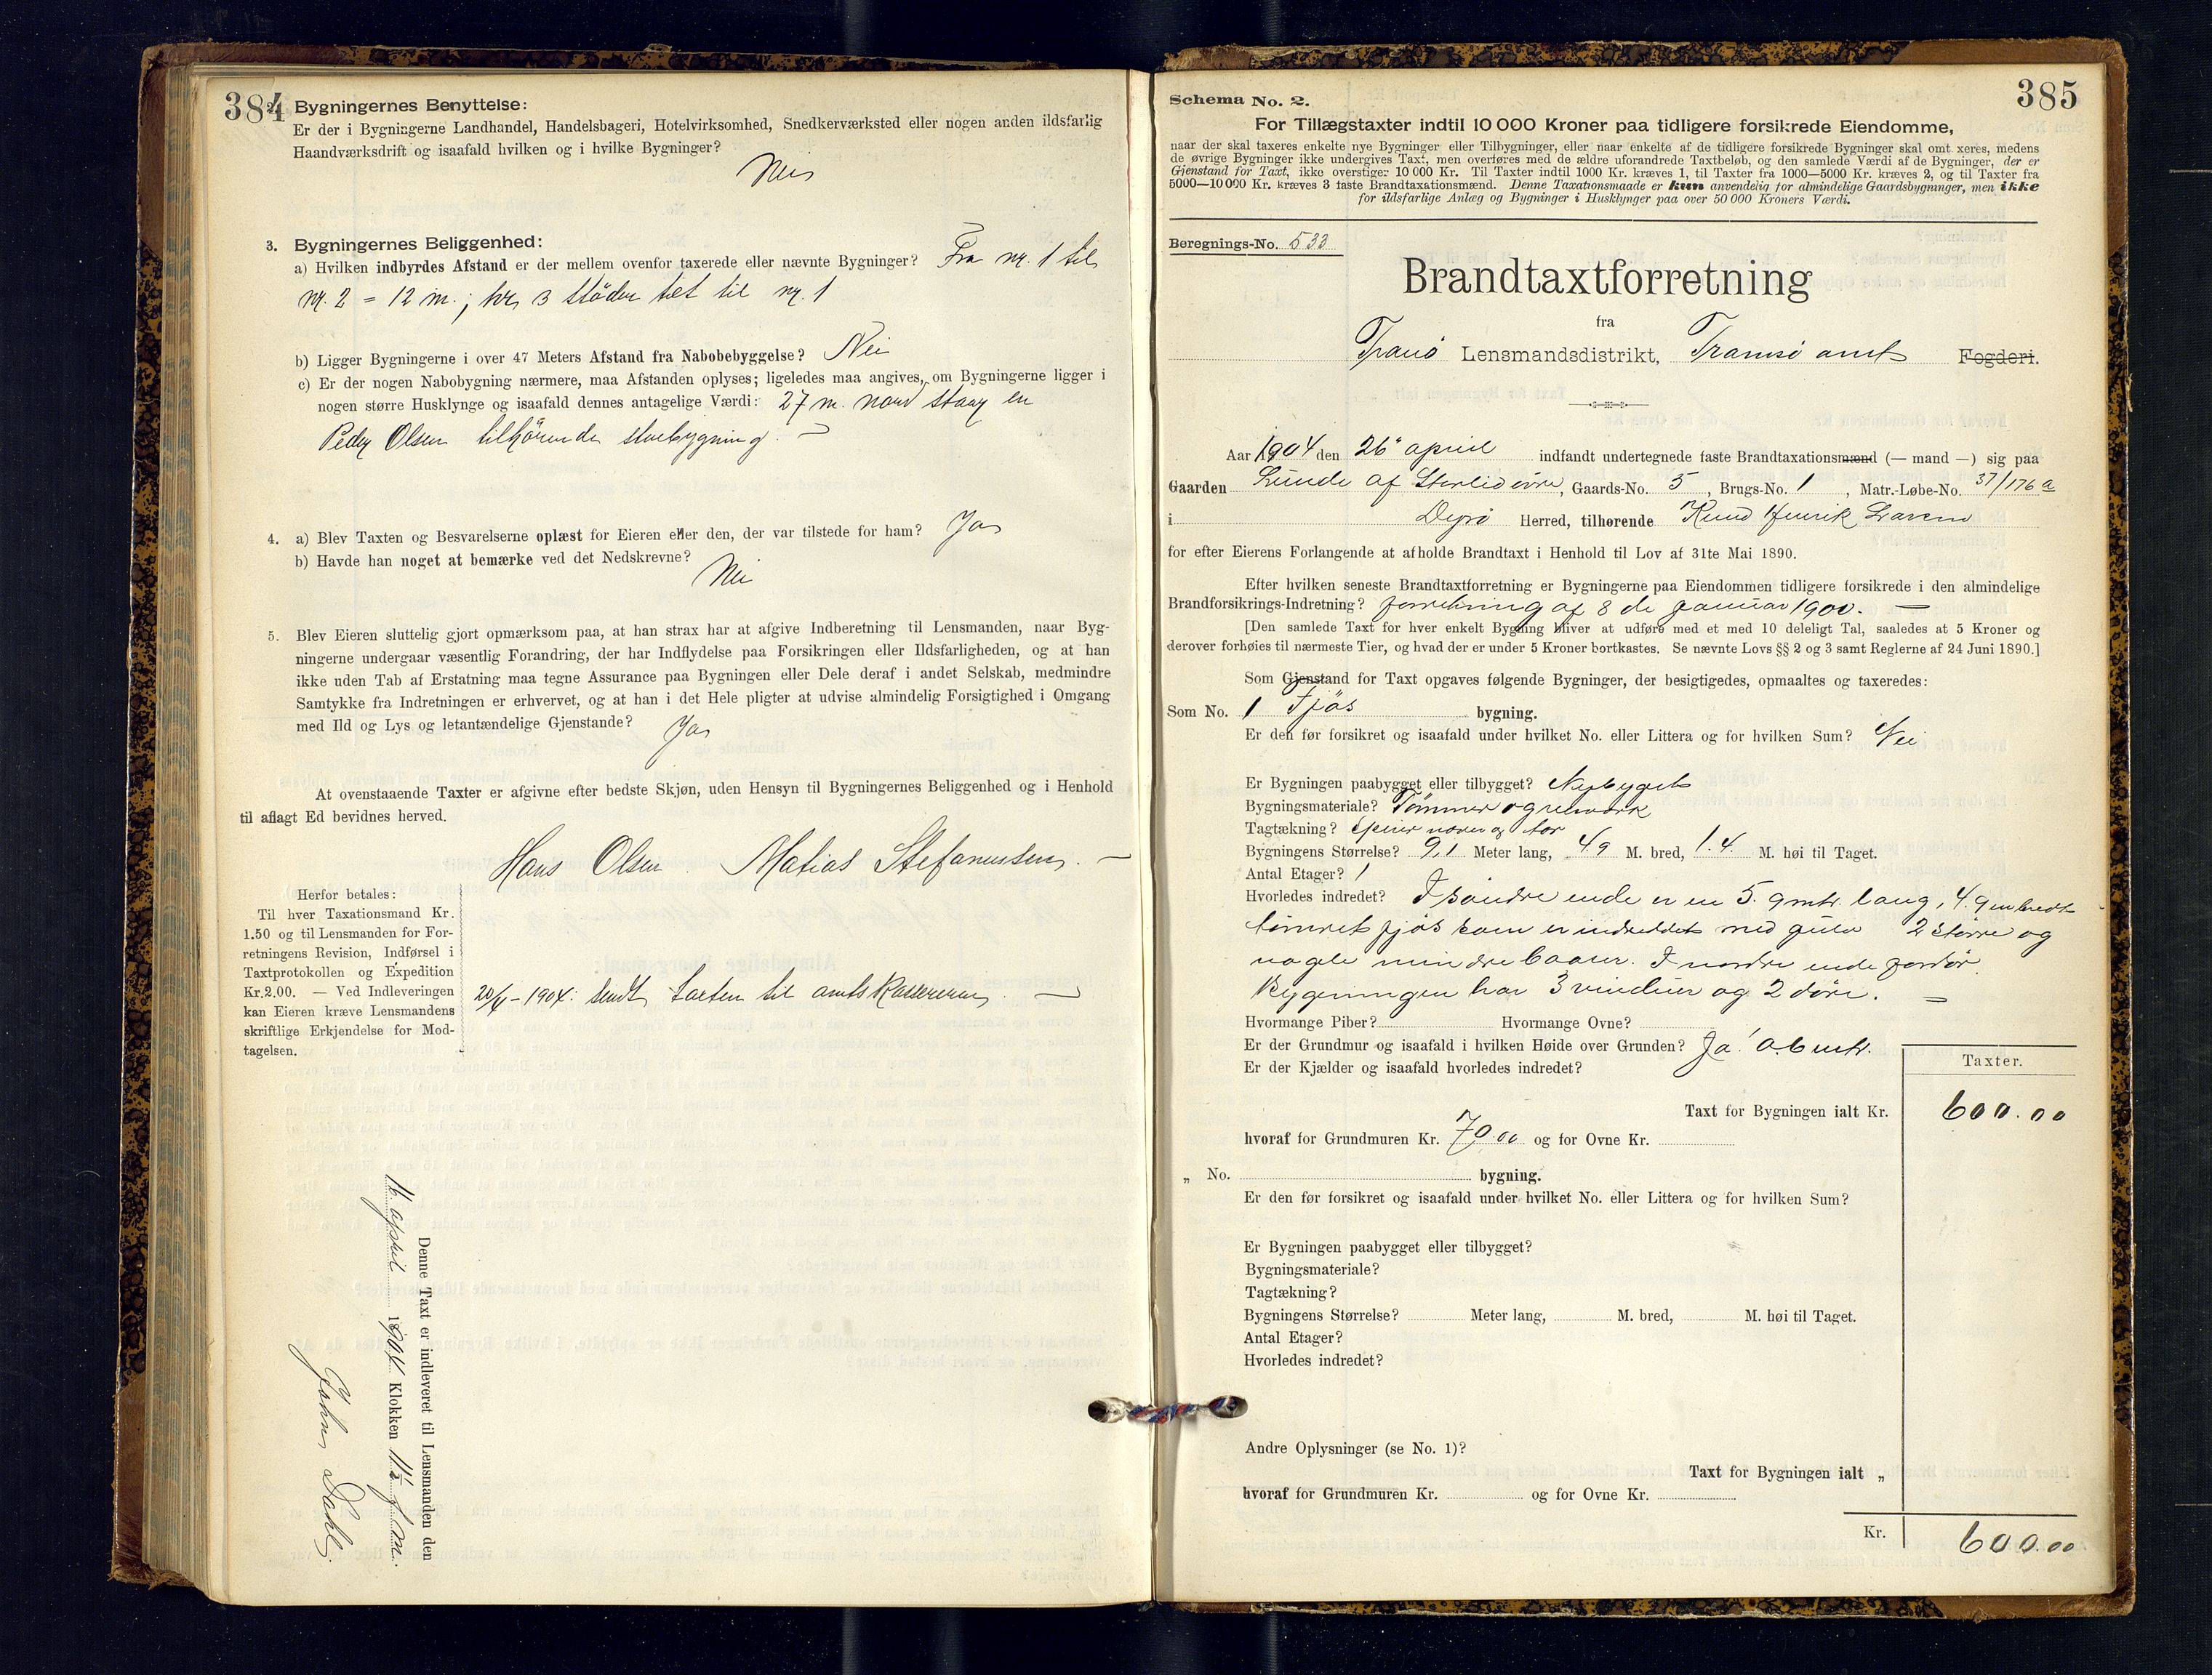 384
2. Bygningernes Benyttelse:
Er der i Bygningerne Landhandel, Handelsbageri, Hotelvirksomhed, Snedkerværksted eller nogen anden ildsfarlig
Haandværksdrift og isaafald hvilken og i hvilke Bygninger?
Nei
3. Bygningernes Beliggenhed:
a) Hvilken indbyrdes Afstand er der mellem ovenfor taxerede eller nævnte Bygninger? Fra nr. 1 til
nr. 2 = 12 m.; nr. 3 støder tæt til nr. 1
b) Ligger Bygningerne i over 47 Meters Afstand fra Nabobebyggelse? Nei
c) Er der nogen Nabobygning nærmere, maa Afstanden oplyses; ligeledes maa angives, om Bygningerne ligger i
nogen større Husklynge og isaafald dennes antagelige Værdi: 27 m. nord staar en
Peder Olsen tilhörende stuebygning. —
4. a) Blev Taxten og Besvarelserne oplæst for Eieren eller den, der var tilstede for ham? Ja
b) Havde han noget at bemærke ved det Nedskrevne?
Nei
5. Blev Eieren sluttelig gjort opmærksom paa, at han strax har at afgive Indberetning til Lensmanden, naar Byg-
ningerne undergaar væsentlig Forandring, der har Indflydelse paa Forsikringen eller Ildsfarligheden, og at han
ikke uden Tab af Erstatning maa tegne Assurance paa Bygningen eller Dele deraf i andet Selskab, medmindre
Samtykke fra Indretningen er erhvervet, og at han i det Hele pligter at udvise almindelig Forsigtighed i Omgang
med Ild og Lys og letantændelige Gjenstande? Ja
At ovenstaaende Taxter er afgivne efter bedste Skjøn, uden Hensyn til Bygningernes Beliggenhed og i Henhold
til aflagt Ed bevidnes herved.
Hans Olsen. Matias Stefanussen. —
Herfor betales:
Til hver Taxationsmand Kr.
1.50 og til Lensmanden for For-
retningens Revision, Indførsel i
Taxtprotokollen og Expedition
Kr.2.00. — Ved Indleveringen
kan Eieren kræve Lensmandens
skriftlige Erkjendelse for Mod-
tagelsen.
20/4-1904: Sendt taxten til amtskassereren. —
Denne Taxt er indleveret til Lensmanden den
16 april 1904 Klokken 11½ f.m.
John Dahl
385
Schema No. 2.
For Tillægstaxter indtil 10 000 Kroner paa tidligere forsikrede Eiendomme,
naar der skal taxeres enkelte nye Bygninger eller Tilbygninger, eller naar enkelte af de tidligere forsikrede Bygninger skal omt xeres, medens
de øvrige Bygninger ikke undergives Taxt, men overføres med de ældre uforandrede Taxtbeløb, og den samlede Værdi af de Bygninger, der er
Gjenstand for Taxt, ikke overstiger 10 000 Kr. Til Taxter indtil 1000 Kr. kræves 1, til Taxter fra 1000—5000 Kr. kræves 2, og til Taxter fra
5000—10 000 Kr. kræves 3 faste Brandtaxationsmænd. Denne Taxationsmaade er kun anvendelig for almindelige Gaardsbygninger, men ikke
for ildsfarlige Anlæg og Bygninger i Husklynger paa over 50 000 Kroners Værdi.
Beregnings-No. 533
Brandtaxtforretning
fra
Tranö Lensmandsdistrikt, Tromsö amt Fogderi.
Aar 1904 den 26de april indfandt undertegnede faste Brandtaxationsmænd (— mand —) sig paa
Gaarden Lunde af, Gaards-No. 5, Brugs-No. 1, Matr.-Løbe-No. 37/176 a
i Dyrö Herred, tilhørende Knud Henrik Larsen
for efter Eierens Forlangende at afholde Brandtaxt i Henhold til Lov af 31te Mai 1890.
Efter hvilken seneste Brandtaxtforretning er Bygningerne paa Eiendommen tidligere forsikrede i den almindelige
Brandforsikrings-Indretning? forretning af 8 de januar 1900. —
[Den samlede Taxt for hver enkelt Bygning bliver at udføre med et med 10 deleligt Tal, saaledes at 5 Kroner og
derover forhøies til nærmeste Tier, og hvad der er under 5 Kroner bortkastes. Se nævnte Lovs §§ 2 og 3 samt Reglerne af 24 Juni 1890.]
Som Gjenstand for Taxt opgaves følgende Bygninger, der besigtigedes, opmaaltes og taxeredes:
Som No. 1 Fjös bygning.
Er den før forsikret og isaafald under hvilket No. eller Littera og for hvilken Sum? Nei
Er Bygningen paabygget eller tilbygget? Nybygget
Bygningsmateriale? Tömmer og renverk
Tagtækning? Sperrer never og torv
Bygningens Størrelse? 9,1 Meter lang, 4.9 M. bred, 1.4 M. høi til Taget.
Antal Etager? 1
Hvorledes indredet? I söndre ende er en 5.9 mtr. lang, 4.9 m bredt
tömret fjös som er indreddet med gulv 2 större og
nogle mindre baaser. I nordre ende
Bygningen har 3 vinduer og 2 döre. —
Hvormange Piber? Hvormange Ovne?
Er der Grundmur og isaafald i hvilken Høide over Grunden? Ja! 0.6 mtr.
Er der Kjælder og isaafald hvorledes indredet?
Taxter.
Taxt for Bygningen ialt Kr. 600.00
hvoraf for Grundmuren Kr. 70.00 og for Ovne Kr.
„ No. bygning.
Er den før forsikret og isaafald under hvilket No. eller Littera og for hvilken Sum?
Er Bygningen paabygget eller tilbygget?
Bygningsmateriale?
Tagtækning?
Bygningens Størrelse? Meter lang, M. bred, M. høi til Taget.
Antal Etager?
Hvorledes indredet?
Andre Oplysninger (se No. 1)?
Taxt for Bygningen ialt „
hvoraf for Grundmuren Kr. og for Ovne Kr.
Kr. 600.00